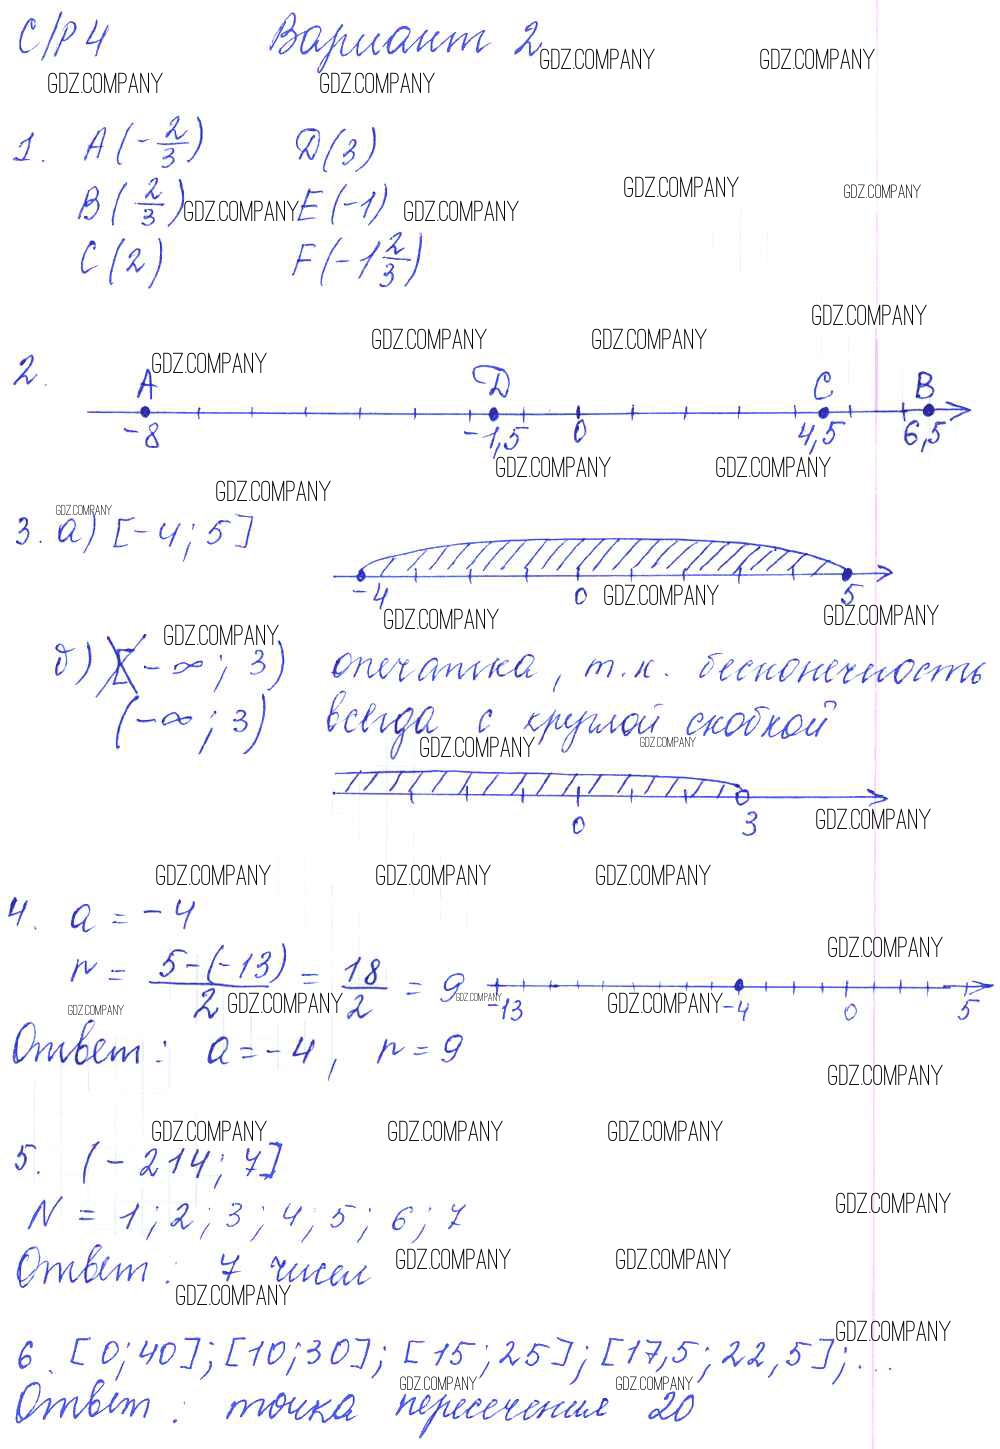 С/Р 4 Вариант 2
GDZ.COMPANY GDZ.COMPANY
GDZ.COMPANY GDZ.COMPANY
1. A(-2/3) D(3)
GDZ.COMPANY GDZ.COMPANY
B(2/3) GDZ.COMPANY E(-1) GDZ.COMPANY
C(2) F(-1 2/3)
GDZ.COMPANY
GDZ.COMPANY GDZ.COMPANY
2. GDZ.COMPANY
A D C B
-8 -1,5 0 4,5 6,5
GDZ.COMPANY GDZ.COMPANY
GDZ.COMPANY
GDZ.COMPANY
3. а) [-4; 5]
-4 0 GDZ.COMPANY 5
GDZ.COMPANY GDZ.COMPANY
GDZ.COMPANY
б) [-∞; 3) опечатка, т.к. бесконечность
(-∞; 3) всегда с круглой скобкой
GDZ.COMPANY GDZ.COMPANY
0 3 GDZ.COMPANY
GDZ.COMPANY GDZ.COMPANY GDZ.COMPANY
4. a = -4
GDZ.COMPANY
r = 5-(-13)/2 = 18/2 = 9
GDZ.COMPANY GDZ.COMPANY GDZ.COMPANY GDZ.COMPANY
-13 -4 0 5
Ответ: a = -4, r = 9
GDZ.COMPANY
GDZ.COMPANY GDZ.COMPANY GDZ.COMPANY
5. (-214; 7]
GDZ.COMPANY
N = 1; 2; 3; 4; 5; 6; 7
Ответ: 7 чисел GDZ.COMPANY GDZ.COMPANY
GDZ.COMPANY
GDZ.COMPANY
6. [0; 40]; [10; 30]; [15; 25]; [17,5; 22,5]; ...
GDZ.COMPANY GDZ.COMPANY
Ответ: точка пересечения 20